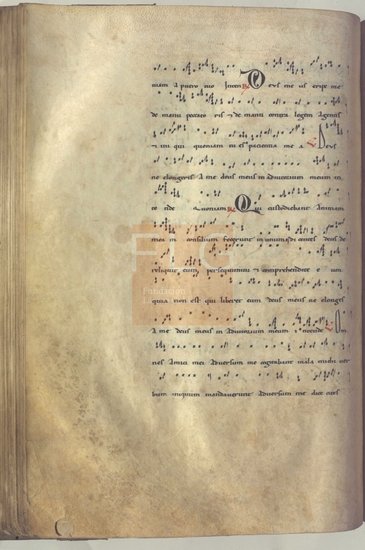 meam A puero meo Intende R Deus meus eripe me
de manu peccato ris & de manu contra legem Agentis
& ini qui quoniam tu es pacientia me a V Deus
ne elongeris A me deus meus in Adiutorium meum in
te nde quoniam R Qui custodiebant Animam
mea m consilium fecerunt in unum dicentes deus de
reliquit eum persequimini & comprehendite e um
quia non est qui liberet eum deus meus ne elonges
A me deus meus in Adiutorium meum intende V Om
nes Inimici mei Adversum me cogitabant mala michi ver
bum iniquum mandaverunt Adversum me dice ntes
FLG
Fundación